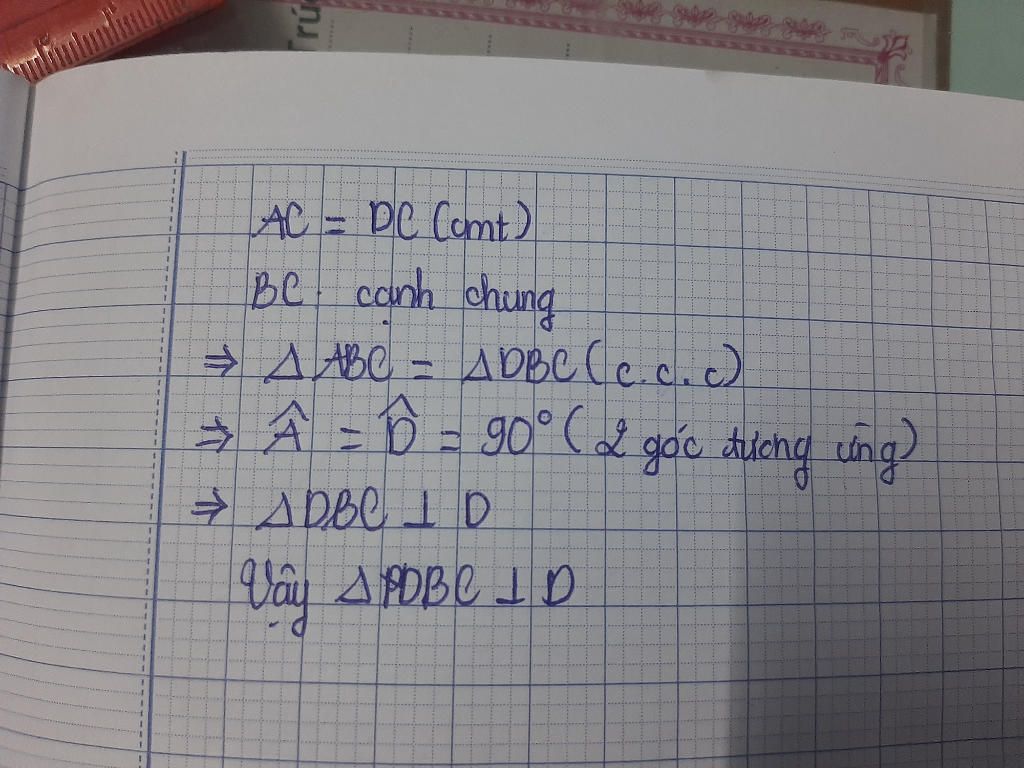 Trú
AC = DC (cmt)
BC. cạnh chung
⇒ Δ ABC = ΔDBC ( c. c. c)
⇒ Â = D̂ = 90° ( 2 góc tương ứng)
⇒ ΔDBC ⊥ D
Vậy ΔDBC ⊥ D